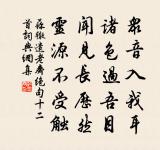 眾音入我耳
諸色過吾目
聞見長歷然
靈源不受觸
蘇轍遺老齋絕句十二
首詞典網集